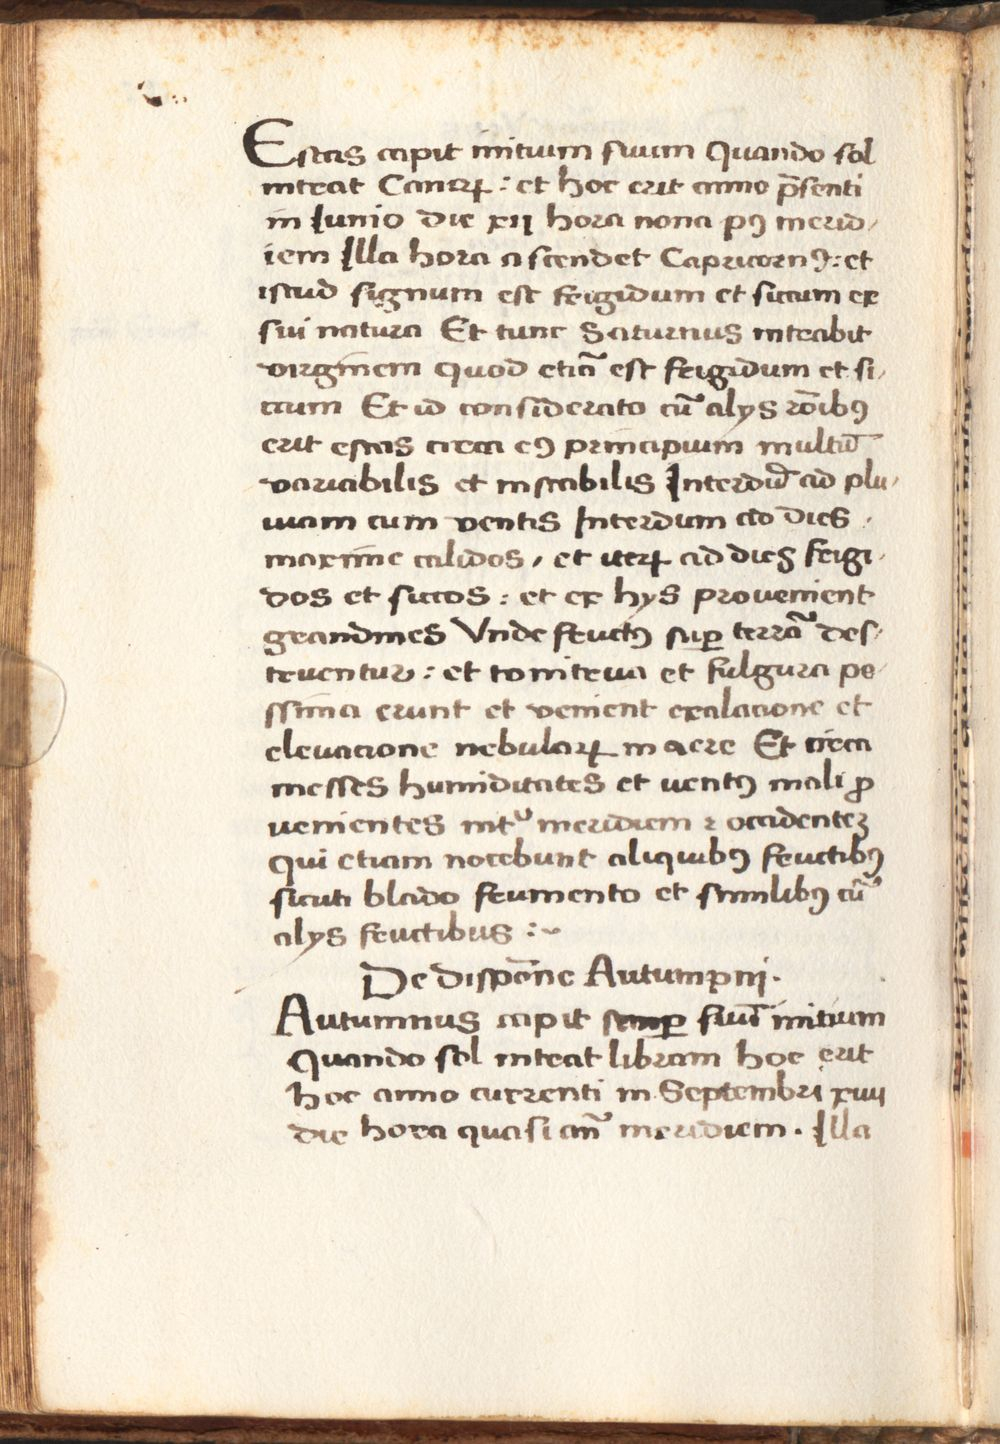 Estas capit initium suum Quando sol
intrat Cancrꝝ : et hoc erit anno p̄senti
in Iunio die xij hora nona pꝰ merid/
iem Illa hora ascendet Capricornꝰ : et
istud signum est frigidum et siccum ex
sui natura Et tunc Saturnus intrabit
virginem quod etiā est frigidum et si/
ccum Et id considerato cū alys rōibꝰ
erit estas circa eꝰ principium multū
variabilis et instabilis Interdū ad plu/
uiam cum ventis Interdum ad dies /
maxime calidos / et iterꝝ ad dies frigi/
dos et siccos : et ex hys provenient
grandines Vnde fructꝰ suꝑ terrā des/
truentur : et tonitrua et fulgura pe/
ssima erunt et venient exalacione et
elevacione nebularꝝ in aere Et circa
messes humiditates et ventꝰ mali ꝓ
uenientes intᵛ meridiem ⁊ occidentēꝫ
qui etiam nocebunt aliquibꝰ fructibꝰ
sicuti blado frumento et similibꝰ cū
alys fructibus :~
De dispōne Autumpnj.
Autumnus capit suū initium
Quando sol intrat libram hoc erit
hoc anno currenti in Septembri xiiij
die hora quasi an̄ meridiem . Illa